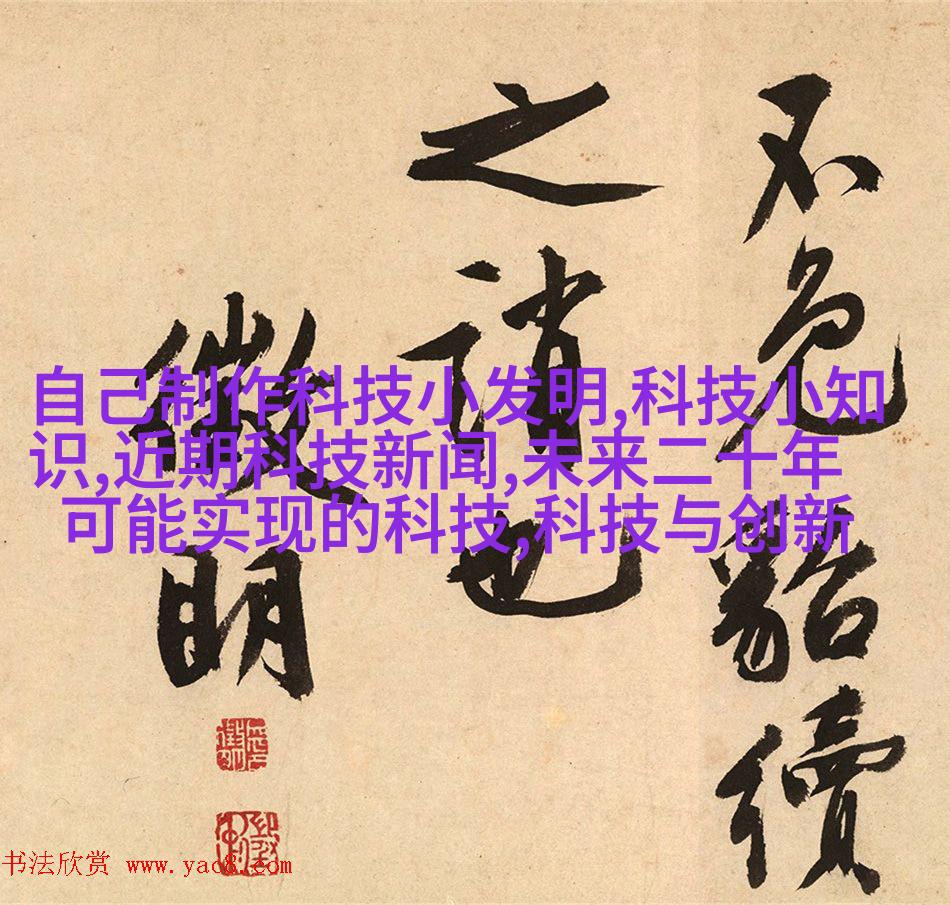 不免貂續
之誚也
徵明
自己制作科技小发明,科技小知
识,近期科技新闻,未来二十年
可能实现的科技,科技与创新
书法欣赏 www.yac8.com